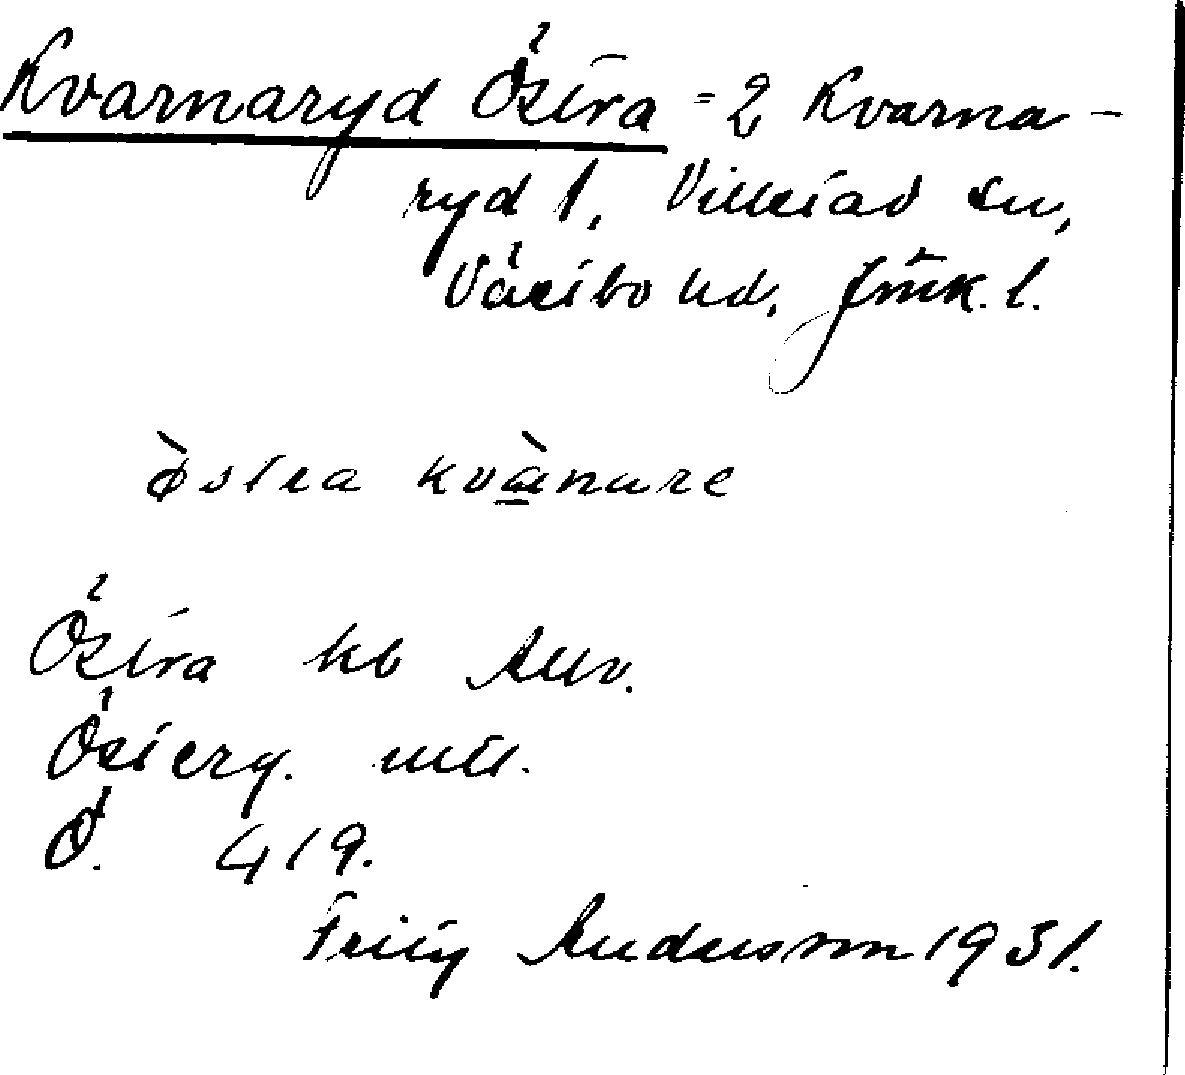 Kvarnaryd Östra = 2 Kvarna-
ryd 1, Villstad sn,
Västbo hd, Jmk. l.
östra kvänare
Östra kb Allv.
Österg. mtl.
Ö. 419.
Fritiof Andersson 1931.